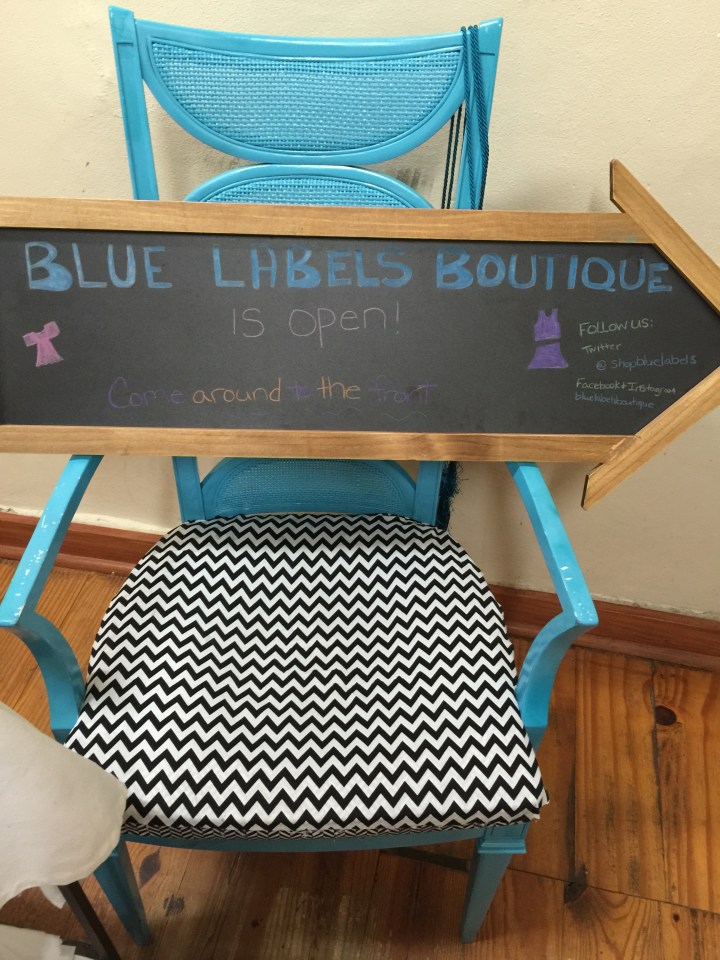 BLUE LABELS BOUTIQUE
is open!
Come around to the front
Follow us:
Twitter
@ Shopbluelabels
Facebook + Instagram
bluelabelsboutique